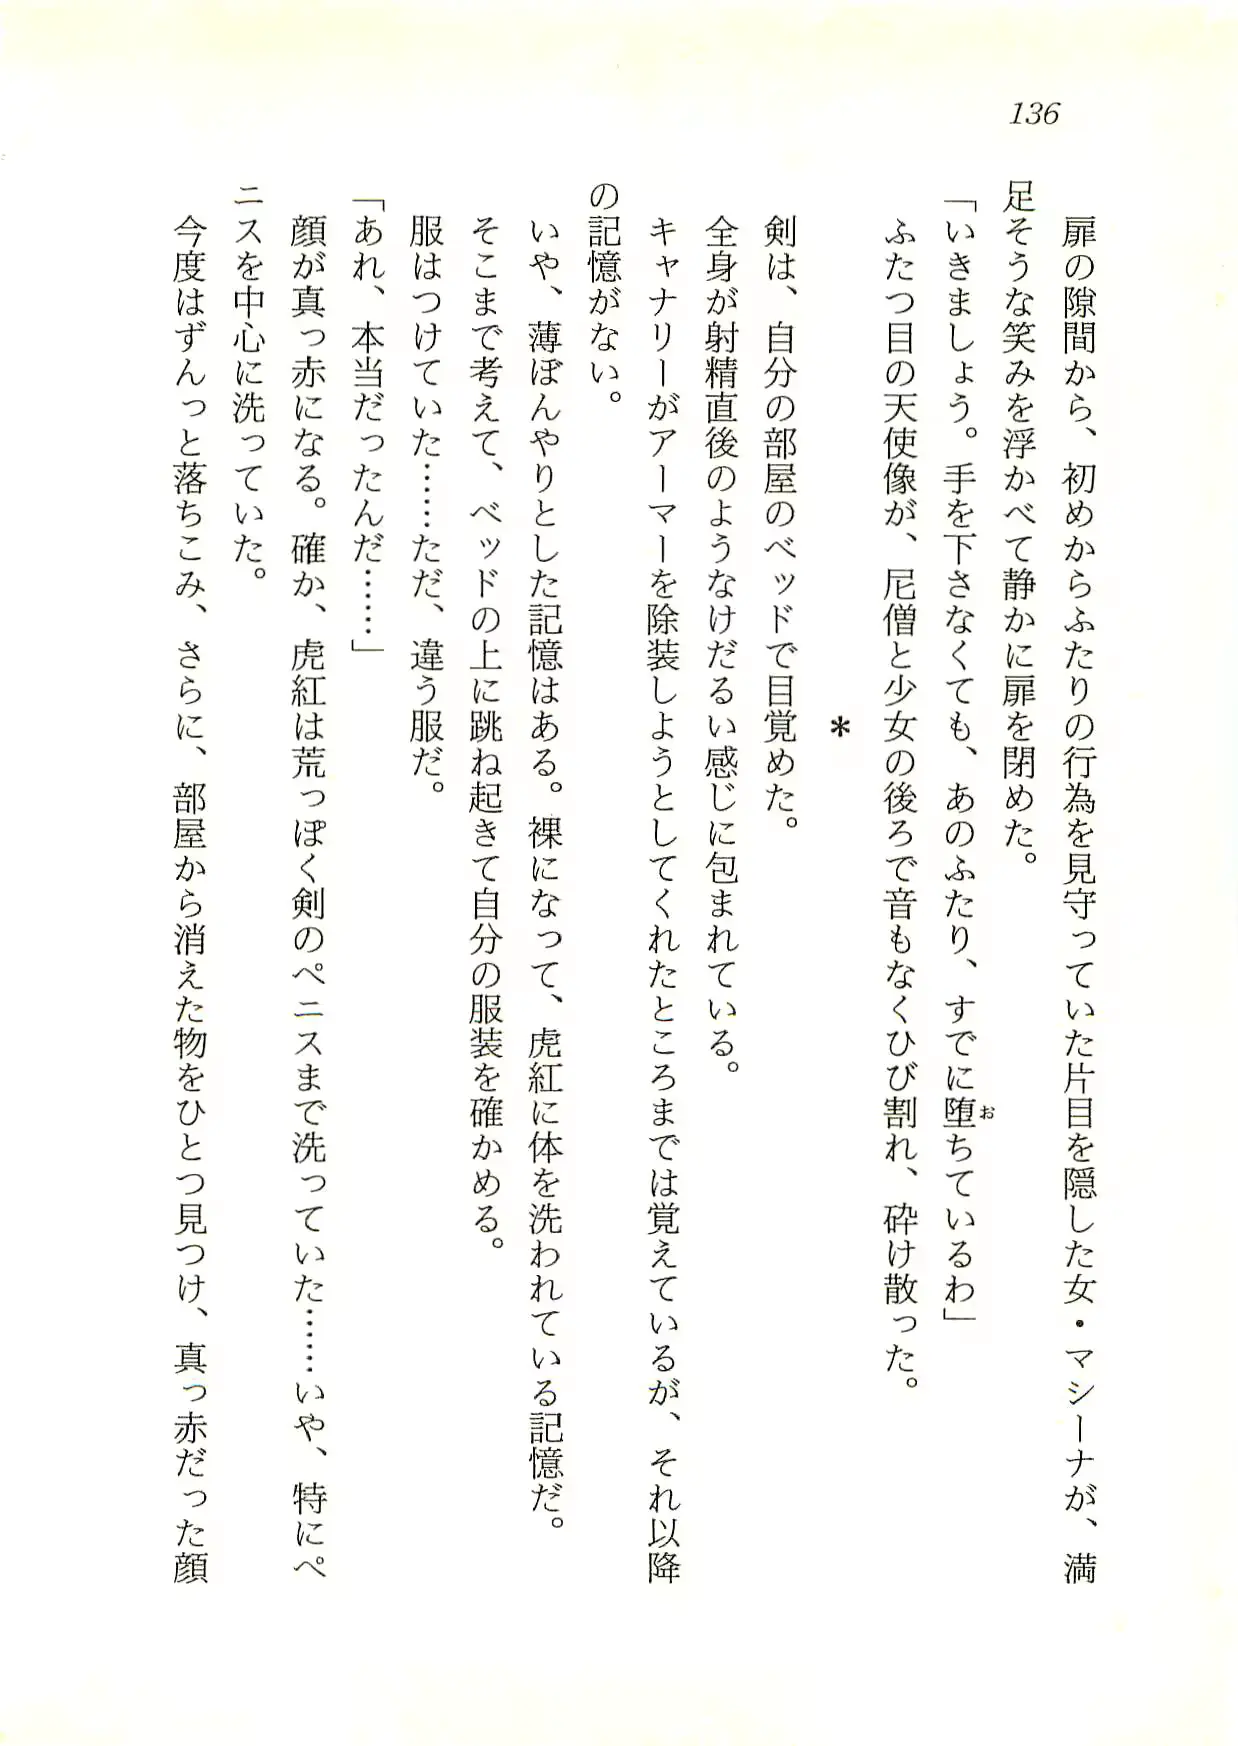 136
扉の隙間から、初めからふたりの行為を見守っていた片目を隠した女・マシーナが、満
足そうな笑みを浮かべて静かに扉を閉めた。
「いきましょう。手を下さなくても、あのふたり、すでに堕ちているわ」
お
ふたつ目の天使像が、尼僧と少女の後ろで音もなくひび割れ、砕け散った。
*
剣は、自分の部屋のベッドで目覚めた。
全身が射精直後のようなけだるい感じに包まれている。
キャナリーがアーマーを除装しようとしてくれたところまでは覚えているが、それ以降
の記憶がない。
いや、薄ぼんやりとした記憶はある。裸になって、虎紅に体を洗われている記憶だ。
そこまで考えて、ベッドの上に跳ね起きて自分の服装を確かめる。
服はつけていた……ただ、違う服だ。
「あれ、本当だったんだ……」
顔が真っ赤になる。確か、虎紅は荒っぽく剣のペニスまで洗っていた……いや、特にペ
ニスを中心に洗っていた。
今度はずんっと落ちこみ、さらに、部屋から消えた物をひとつ見つけ、真っ赤だった顔